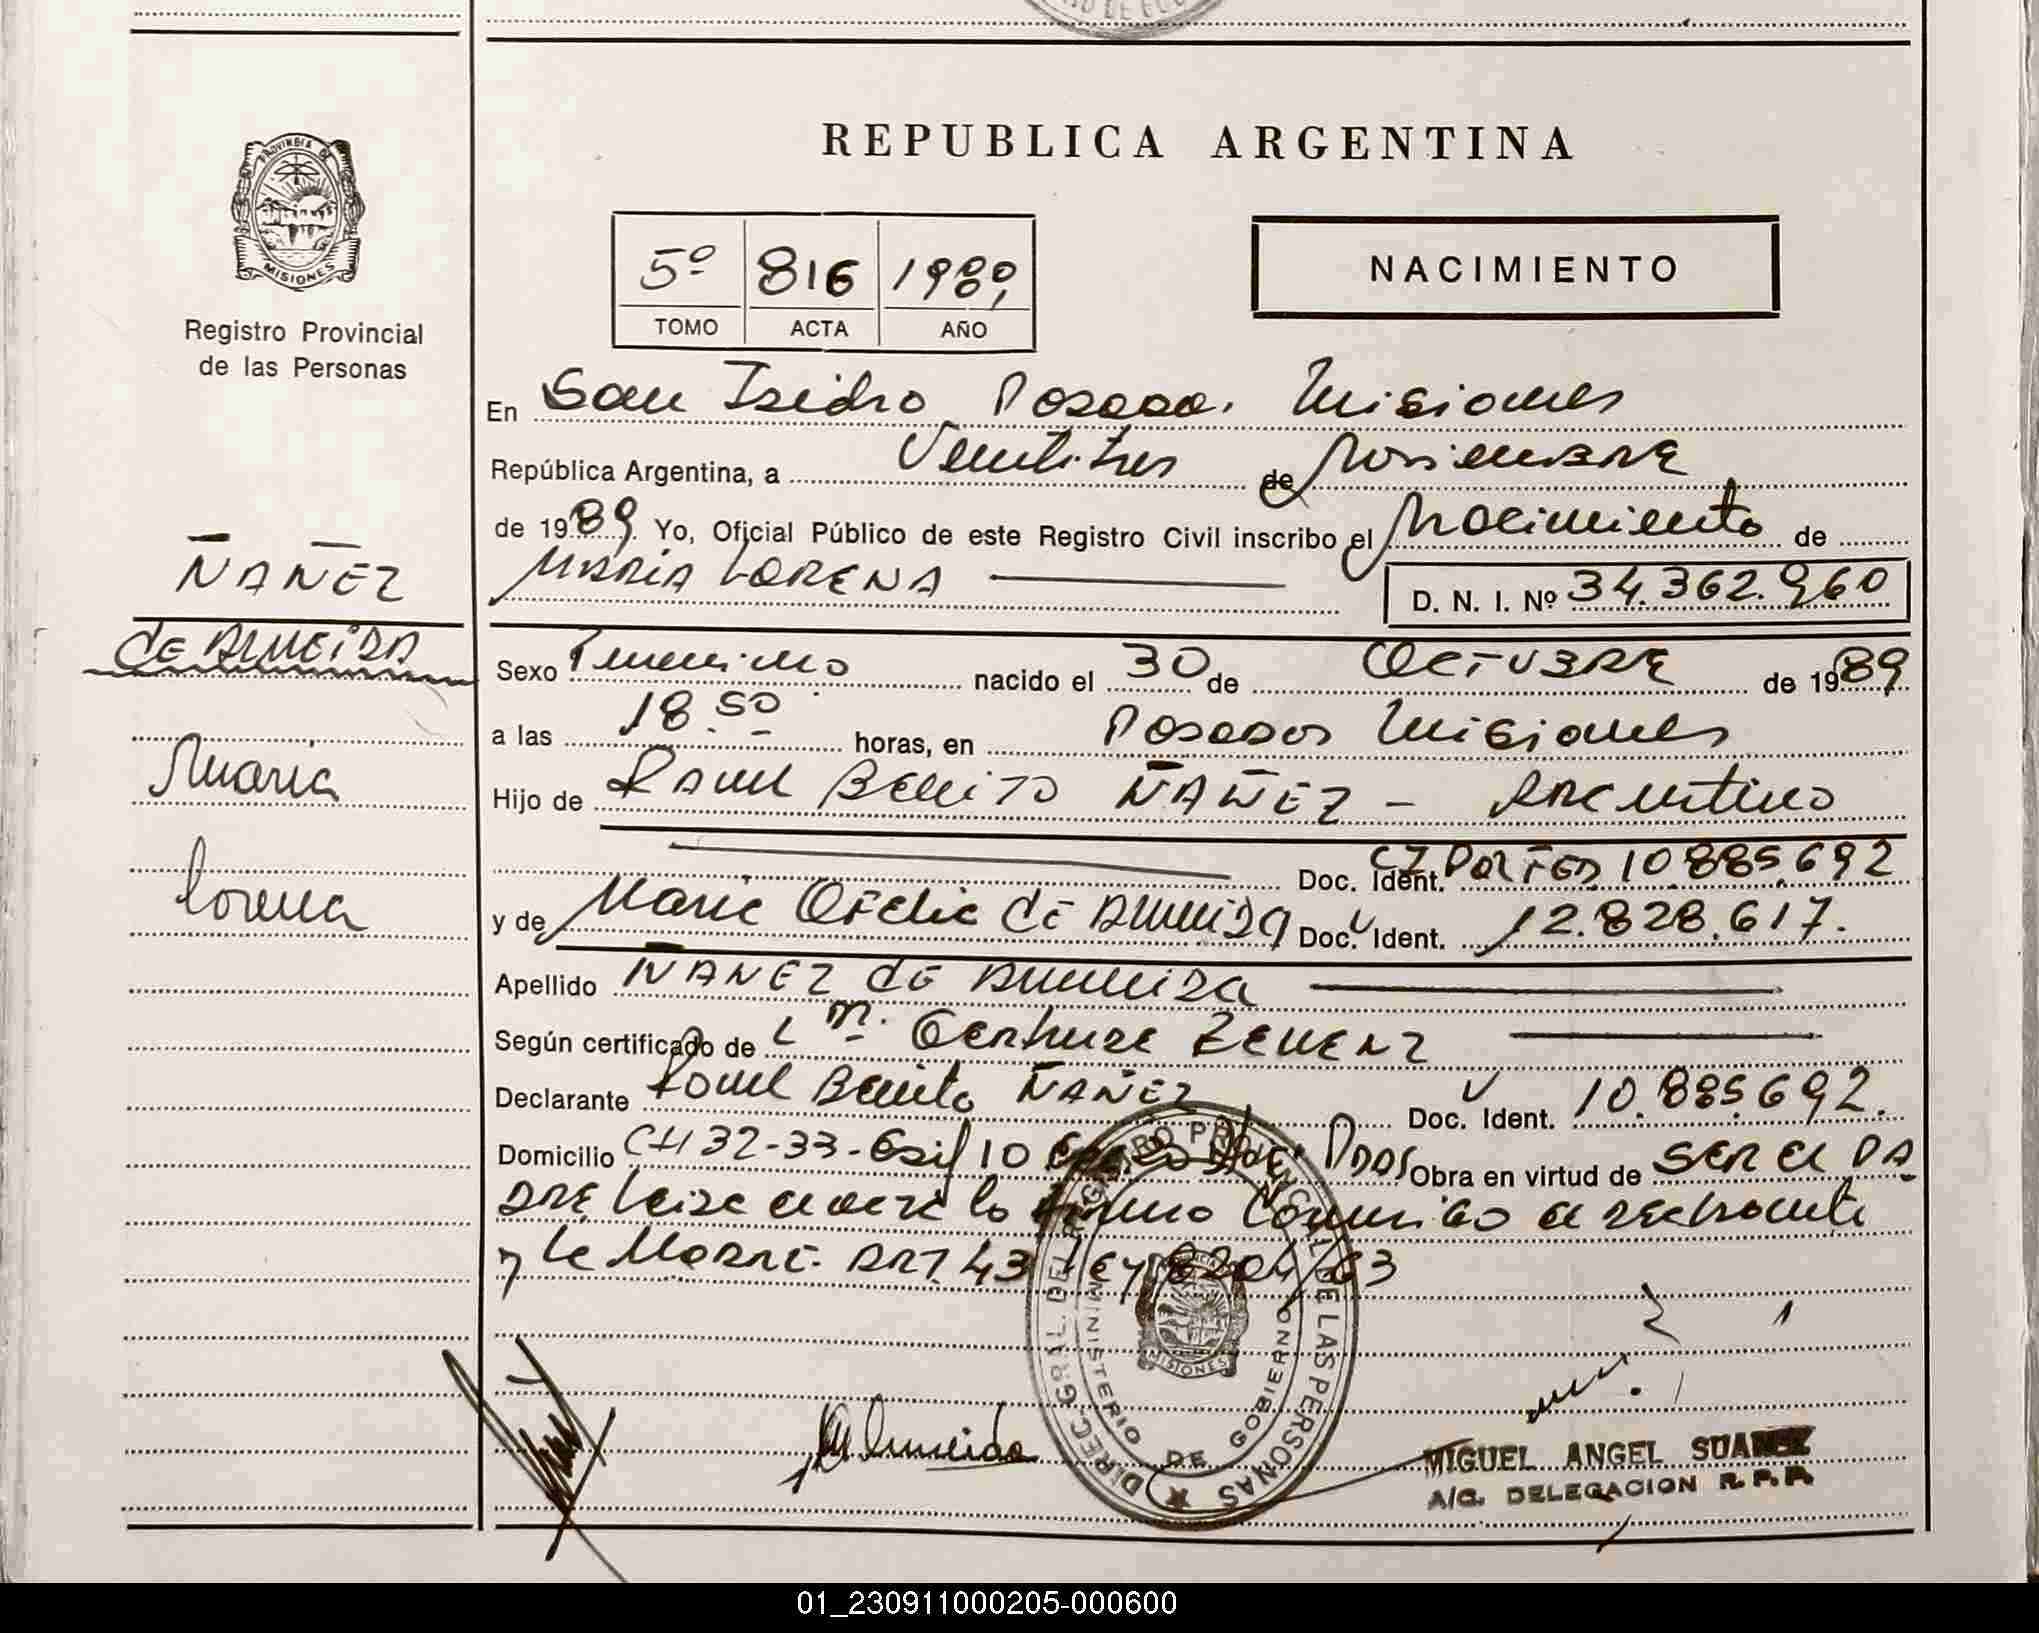 REPUBLICA ARGENTINA
PROVINCIA DE
MISIONES
Registro Provincial
de las Personas
5º 816 1989
TOMO ACTA AÑO
NACIMIENTO
En San Isidro Posadas. Misiones
República Argentina, a Ventitres de Noviembre
de 1989 Yo, Oficial Público de este Registro Civil inscribo el Nacimiento de
MARIA LORENA
D. N. I. Nº 34.362.960
ÑAÑEZ
de ALMEIDA
Maria
Lorena
Sexo Femenino nacido el 30 de OCTUBRE de 1989
a las 18.50 horas, en Posadas Misiones
Hijo de Raul Benito ÑAÑEZ - Argentino
Doc. Ident. 10.885.692
y de Maria Ofelia de Almeida Doc. Ident. 12.828.617.
Apellido ÑAÑEZ de Almeida
Según certificado de
Declarante Raul Benito ÑAÑEZ Doc. Ident. 10.885.692.
Domicilio CH 32-33- 10 Pdas Obra en virtud de ser el pa
dre lo
y la Madre. ART. 43 Ley 8204/63
Almeida
DIREC. GRAL. DEL REGISTRO PROVINCIAL DE LAS PERSONAS
MINISTERIO DE GOBIERNO
MISIONES
MIGUEL ANGEL SUAREZ
A/C. DELEGACION R. P. P.
01_230911000205-000600